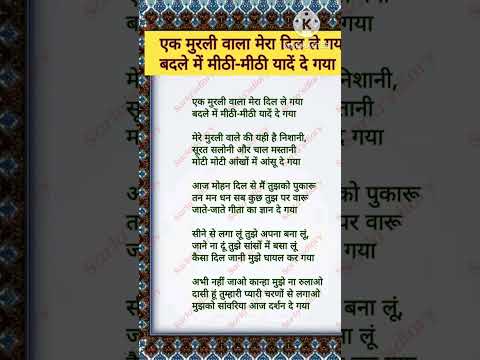 एक मुरली वाला मेरा दिल ले गया
बदले में मीठी-मीठी यादें दे गया
एक मुरली वाला मेरा दिल ले गया
बदले में मीठी-मीठी यादें दे गया
मेरे मुरली वाले की यही है निशानी,
सूरत सलोनी और चाल मस्तानी
मोटी मोटी आंखों में आंसू दे गया
आज मोहन दिल से मैं तुझको पुकारू
तन मन धन सब कुछ तुझ पर वारू
जाते-जाते गीता का ज्ञान दे गया
सीने से लगा लूं तुझे अपना बना लूं,
जाने ना दूं तुझे सांसों में बसा लूं
कैसा दिल जानी मुझे घायल कर गया
अभी नहीं जाओ कान्हा मुझे ना रुलाओ
दासी हूं तुम्हारी प्यारी चरणों से लगाओ
मुझको सांवरिया आज दर्शन दे गया